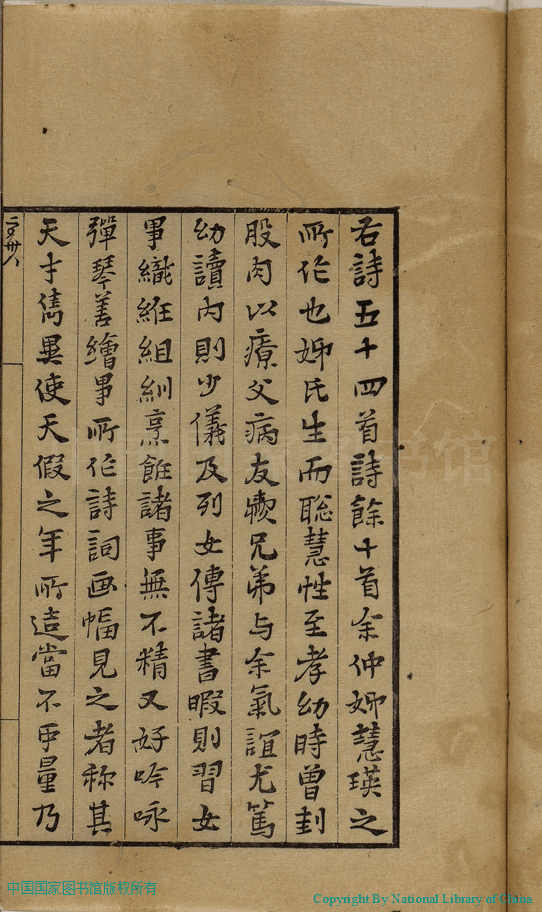 右詩五十四首詩餘十首余仲姊慧瑛之
所作也姊氏生而聡慧性至孝幼時曾刲
股肉以療父病友愛兄弟与余氣誼尤篤
幼讀内則少儀及列女傳諸書暇則習女
事織紝組紃烹飪諸事無不精又好吟咏
彈琴善繪事所作詩詞画幅見之者称其
天才儁異使天假之年所造當不可量乃
中国国家图书馆版权所有
Copyright By National Library of China